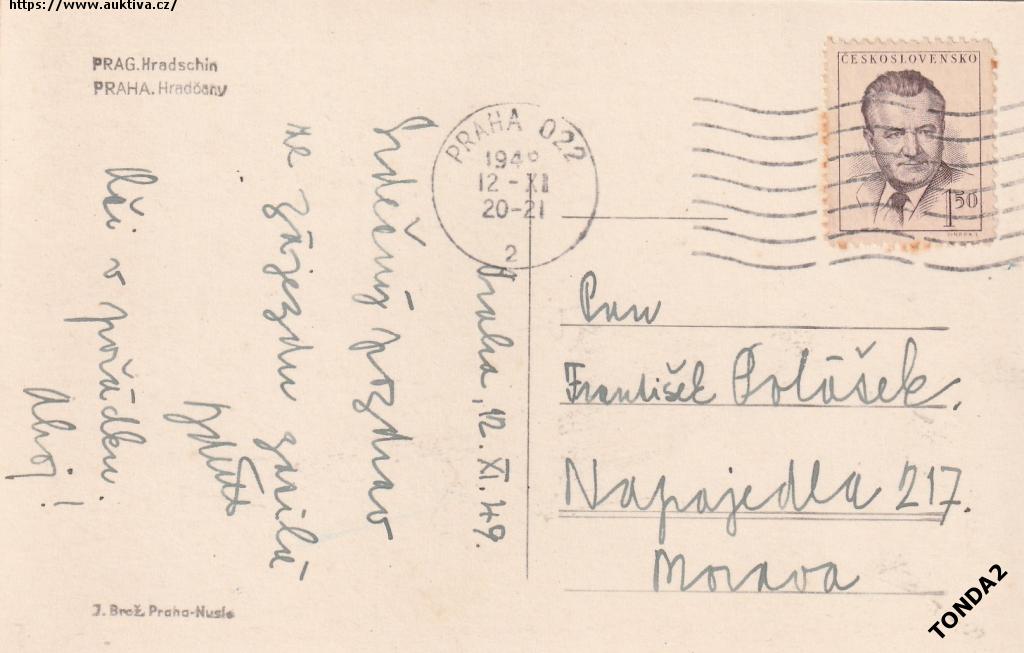 https://www.auktiva.cz/
PRAG.Hradschin
PRAHA.Hradčany
ČESKOSLOVENSKO
1 50
PRAHA 022
12-XI
20-21
2
Praha, 12. XI. 49.
Srdečný pozdrav
ze zájezdu zasílá
Vše v pořádku.
Ahoj!
Pan
František Polášek.
Napajedla 217.
Morava
J. Brož, Praha-Nusle
TONDA2